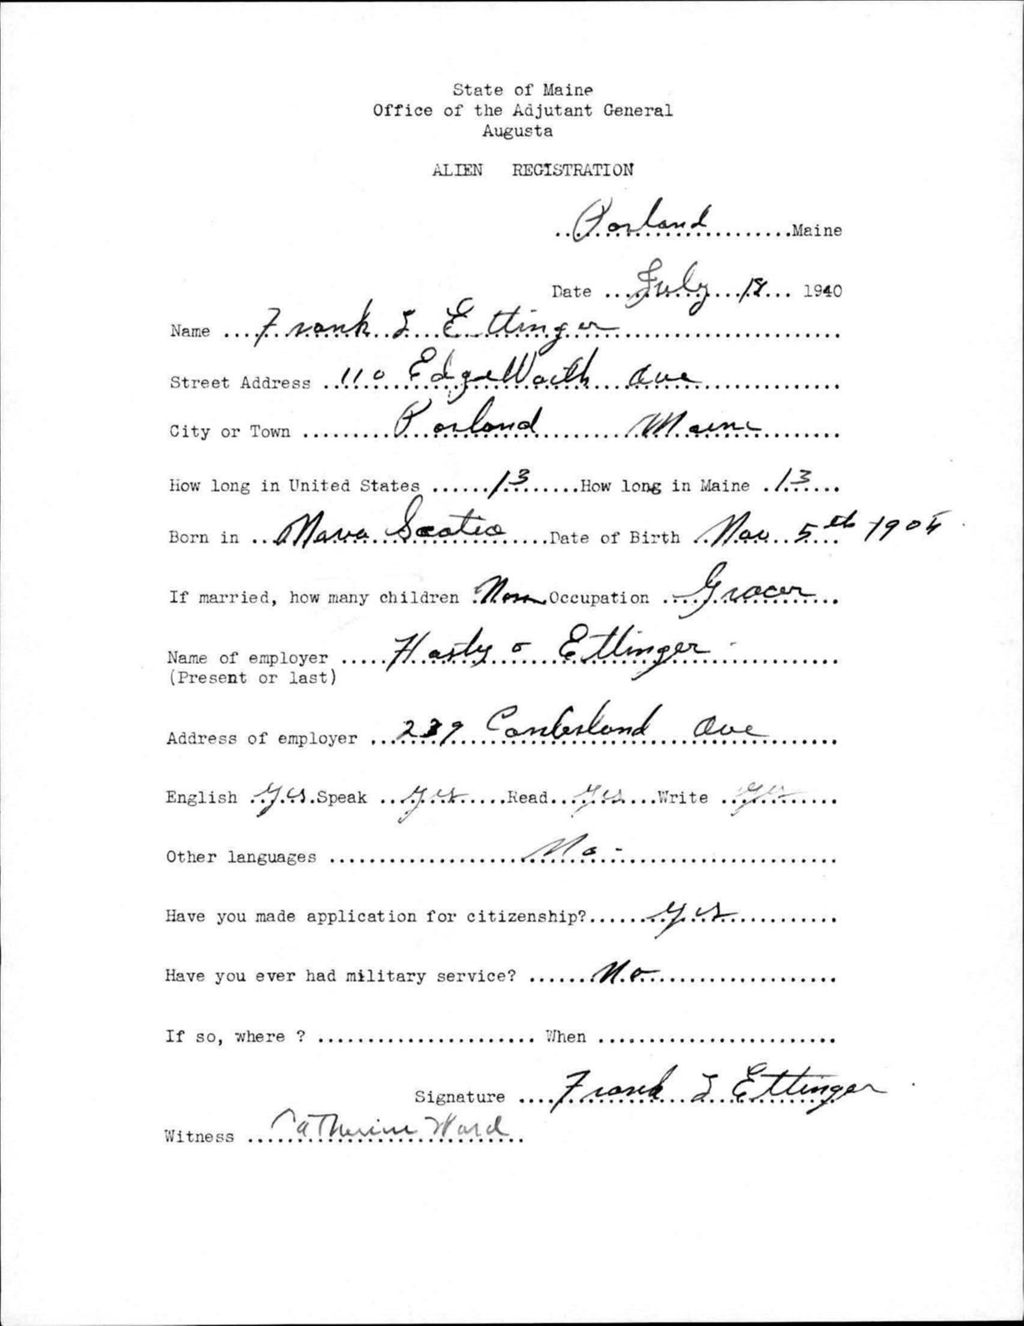 State of Maine
Office of the Adjutant General
Augusta
ALIEN REGISTRATION
Porland Maine
Date July 18 1940
Name Frank I Ettinger
Street Address 110 EdgeWorth Ave
City or Town Porland Maine
How long in United States 13 How long in Maine 13
Born in Nova Scotia Date of Birth Nov 5th
If married, how many children Occupation Grocer
Name of employer Hasty & Ettinger
(Present or last)
Address of employer Ave
English Yes Speak yes Read yes Write yes
Other languages No -
Have you made application for citizenship? yes
Have you ever had military service? No
If so, where ? When
Signature Frank I Ettinger
Witness Catherine Ward